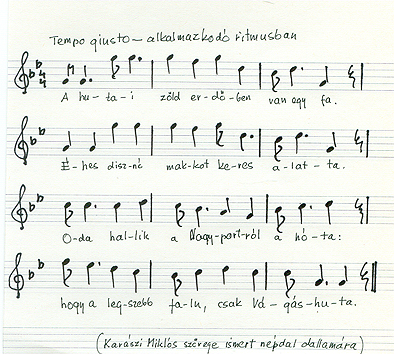 Tempo giusto – alkalmazkodó ritmusban
A hu-ta-i zöld er-dő-ben van egy fa.
É-hes disz-nó mak-kot ke-res a-lat-ta.
O-da hal-lik a Nagy-part-ról a nó-ta:
hogy a leg-szebb fa-lu, csak Vá-gás-hu-ta.
(Karászi Miklós szövege ismert népdal dallamára)